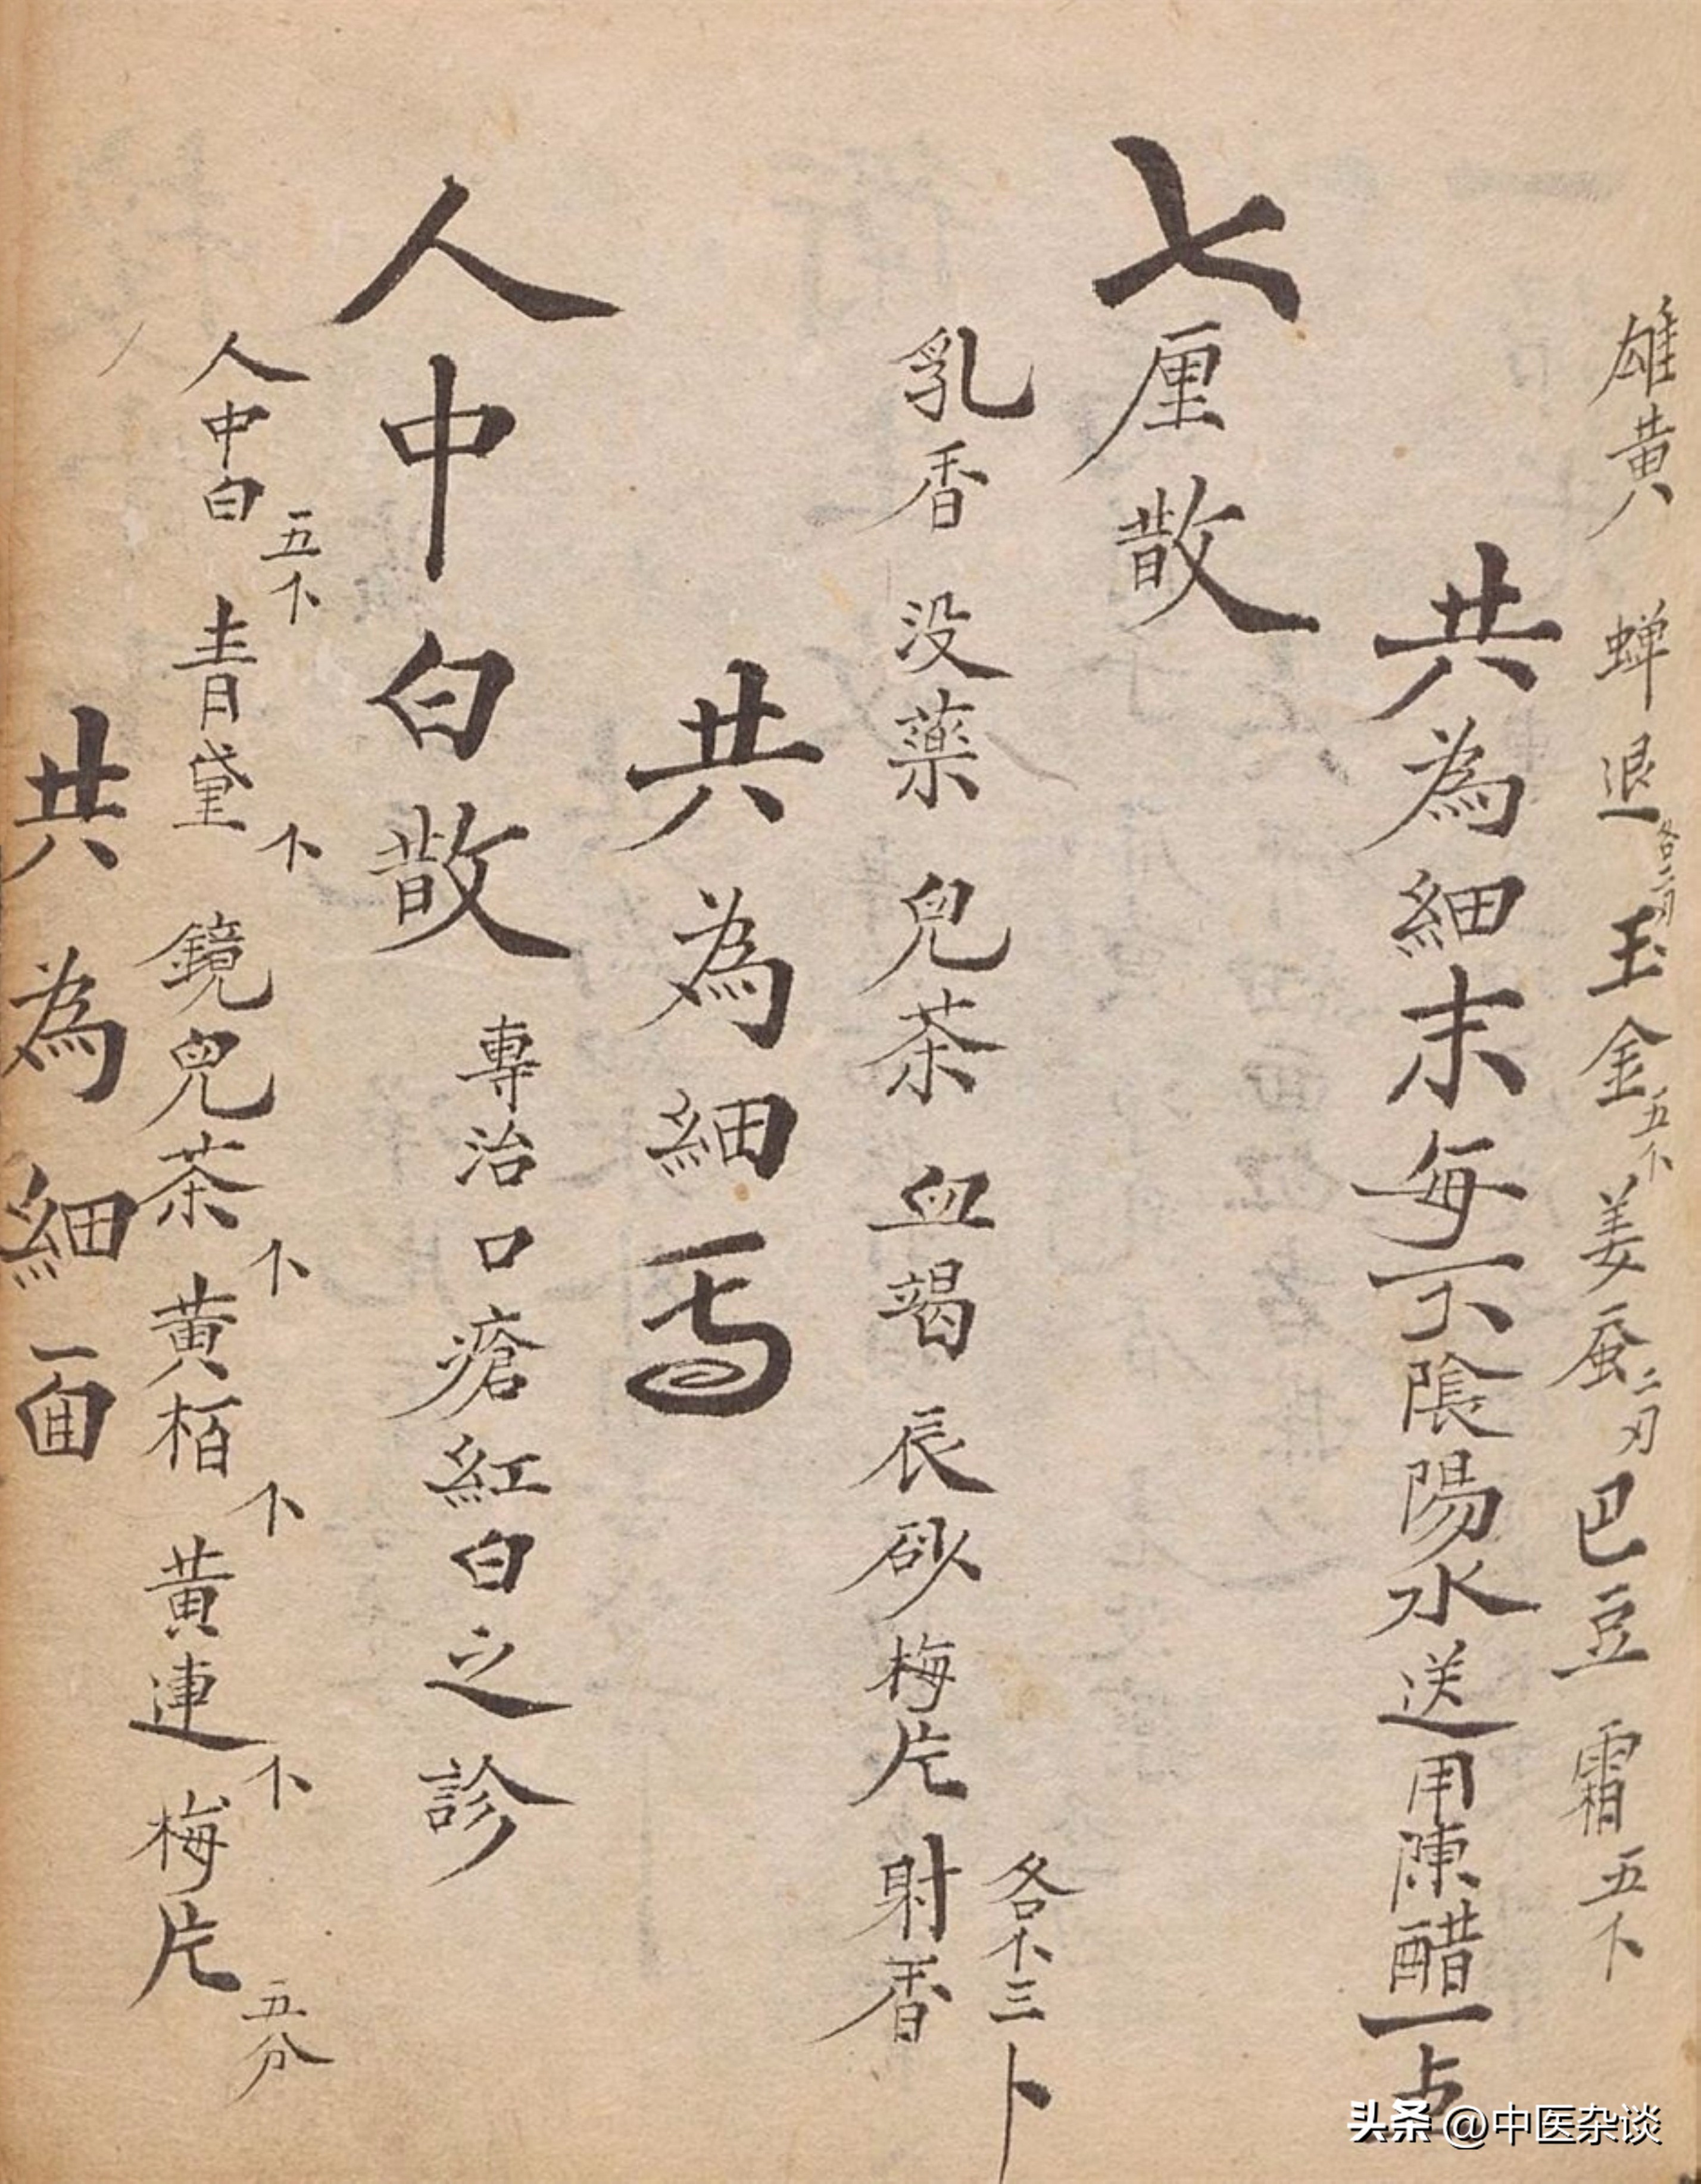 雄黄 蟬退各二刃玉金五个姜蚕二刃巴豆霜五下
共為細末每一个陰陽水送用陳醋一占
七厘散
乳香 没藥 兒茶 血竭 辰砂 梅片 射香各个三卜
共為細丐
人中白散 專治口瘡紅白之診
人中白五个 青黛个 鏡兒茶个 黄栢个 黄連个 梅片五分
共為細面
头条 @中医杂谈